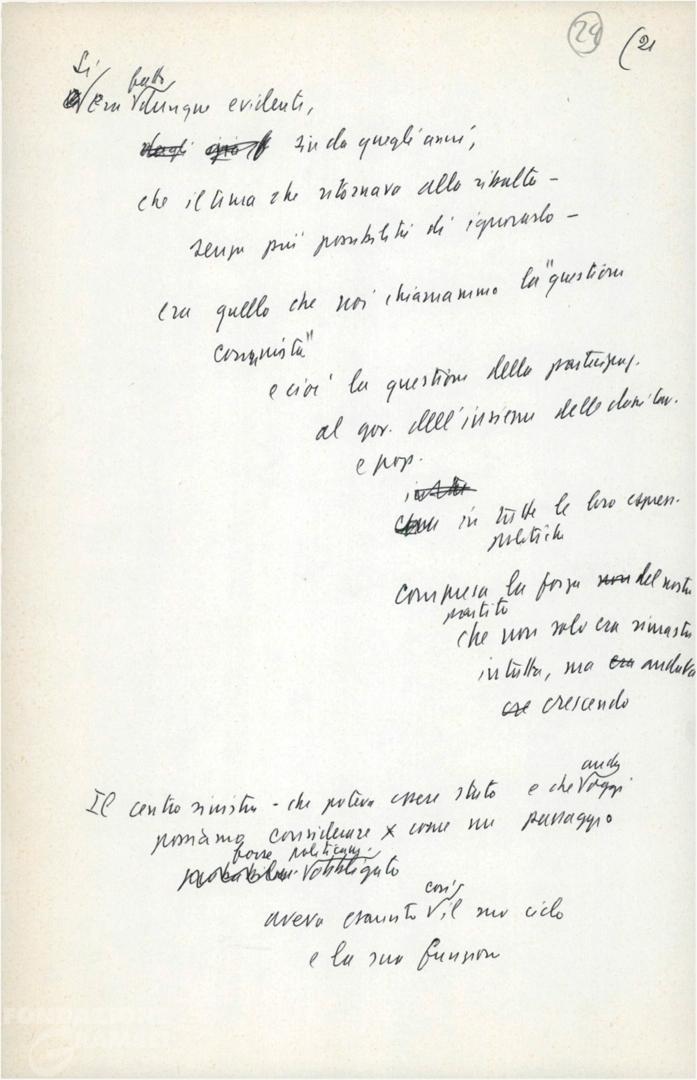 24 (21
Si era fatto dunque evidente,
sin da quegli anni,
che il tema che ritornava alla ribalta -
senza più possibilità di ignorarlo -
era quello che noi chiamammo la "questione
comunista"
e cioè la questione della partecipaz.
al gov. dell'insieme delle classi lav.
e pop.
in tutte le loro espress.
politiche
compresa la forza non del nostro
partito
che non solo era rimasta
intatta, ma era andata
crescendo
Il centro sinistra - che poteva essere stato e che anche oggi
possiamo considerare x come un passaggio
forse politicam. obbligato
aveva esaurito così il suo ciclo
e la sua funzione
FONDAZIONE
GRAMSCI